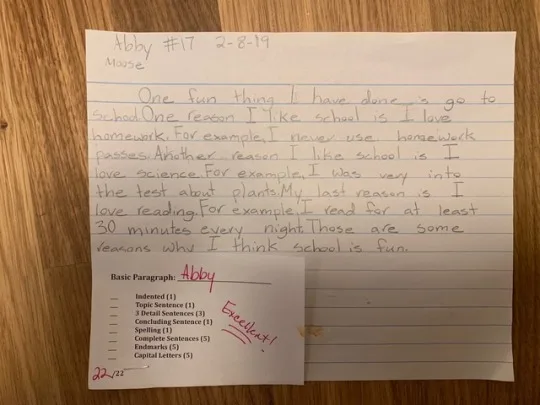 Abby #17 2-8-19
Mouse
One fun thing I have done is go to
school. One reason I like school is I love
homework. For example, I never use homework
passes. Another reason I like school is I
love science. For example, I was very into
the test about plants. My last reason is I
love reading. For example, I read for at least
30 minutes every night. Those are some
reasons why I think school is fun.
Basic Paragraph: Abby
Indented (1)
Topic Sentence (1)
3 Detail Sentences (3)
Concluding Sentence (1)
Spelling (1)
Complete Sentences (5)
Endmarks (5)
Capital Letters (5)
Excellent!
22/22